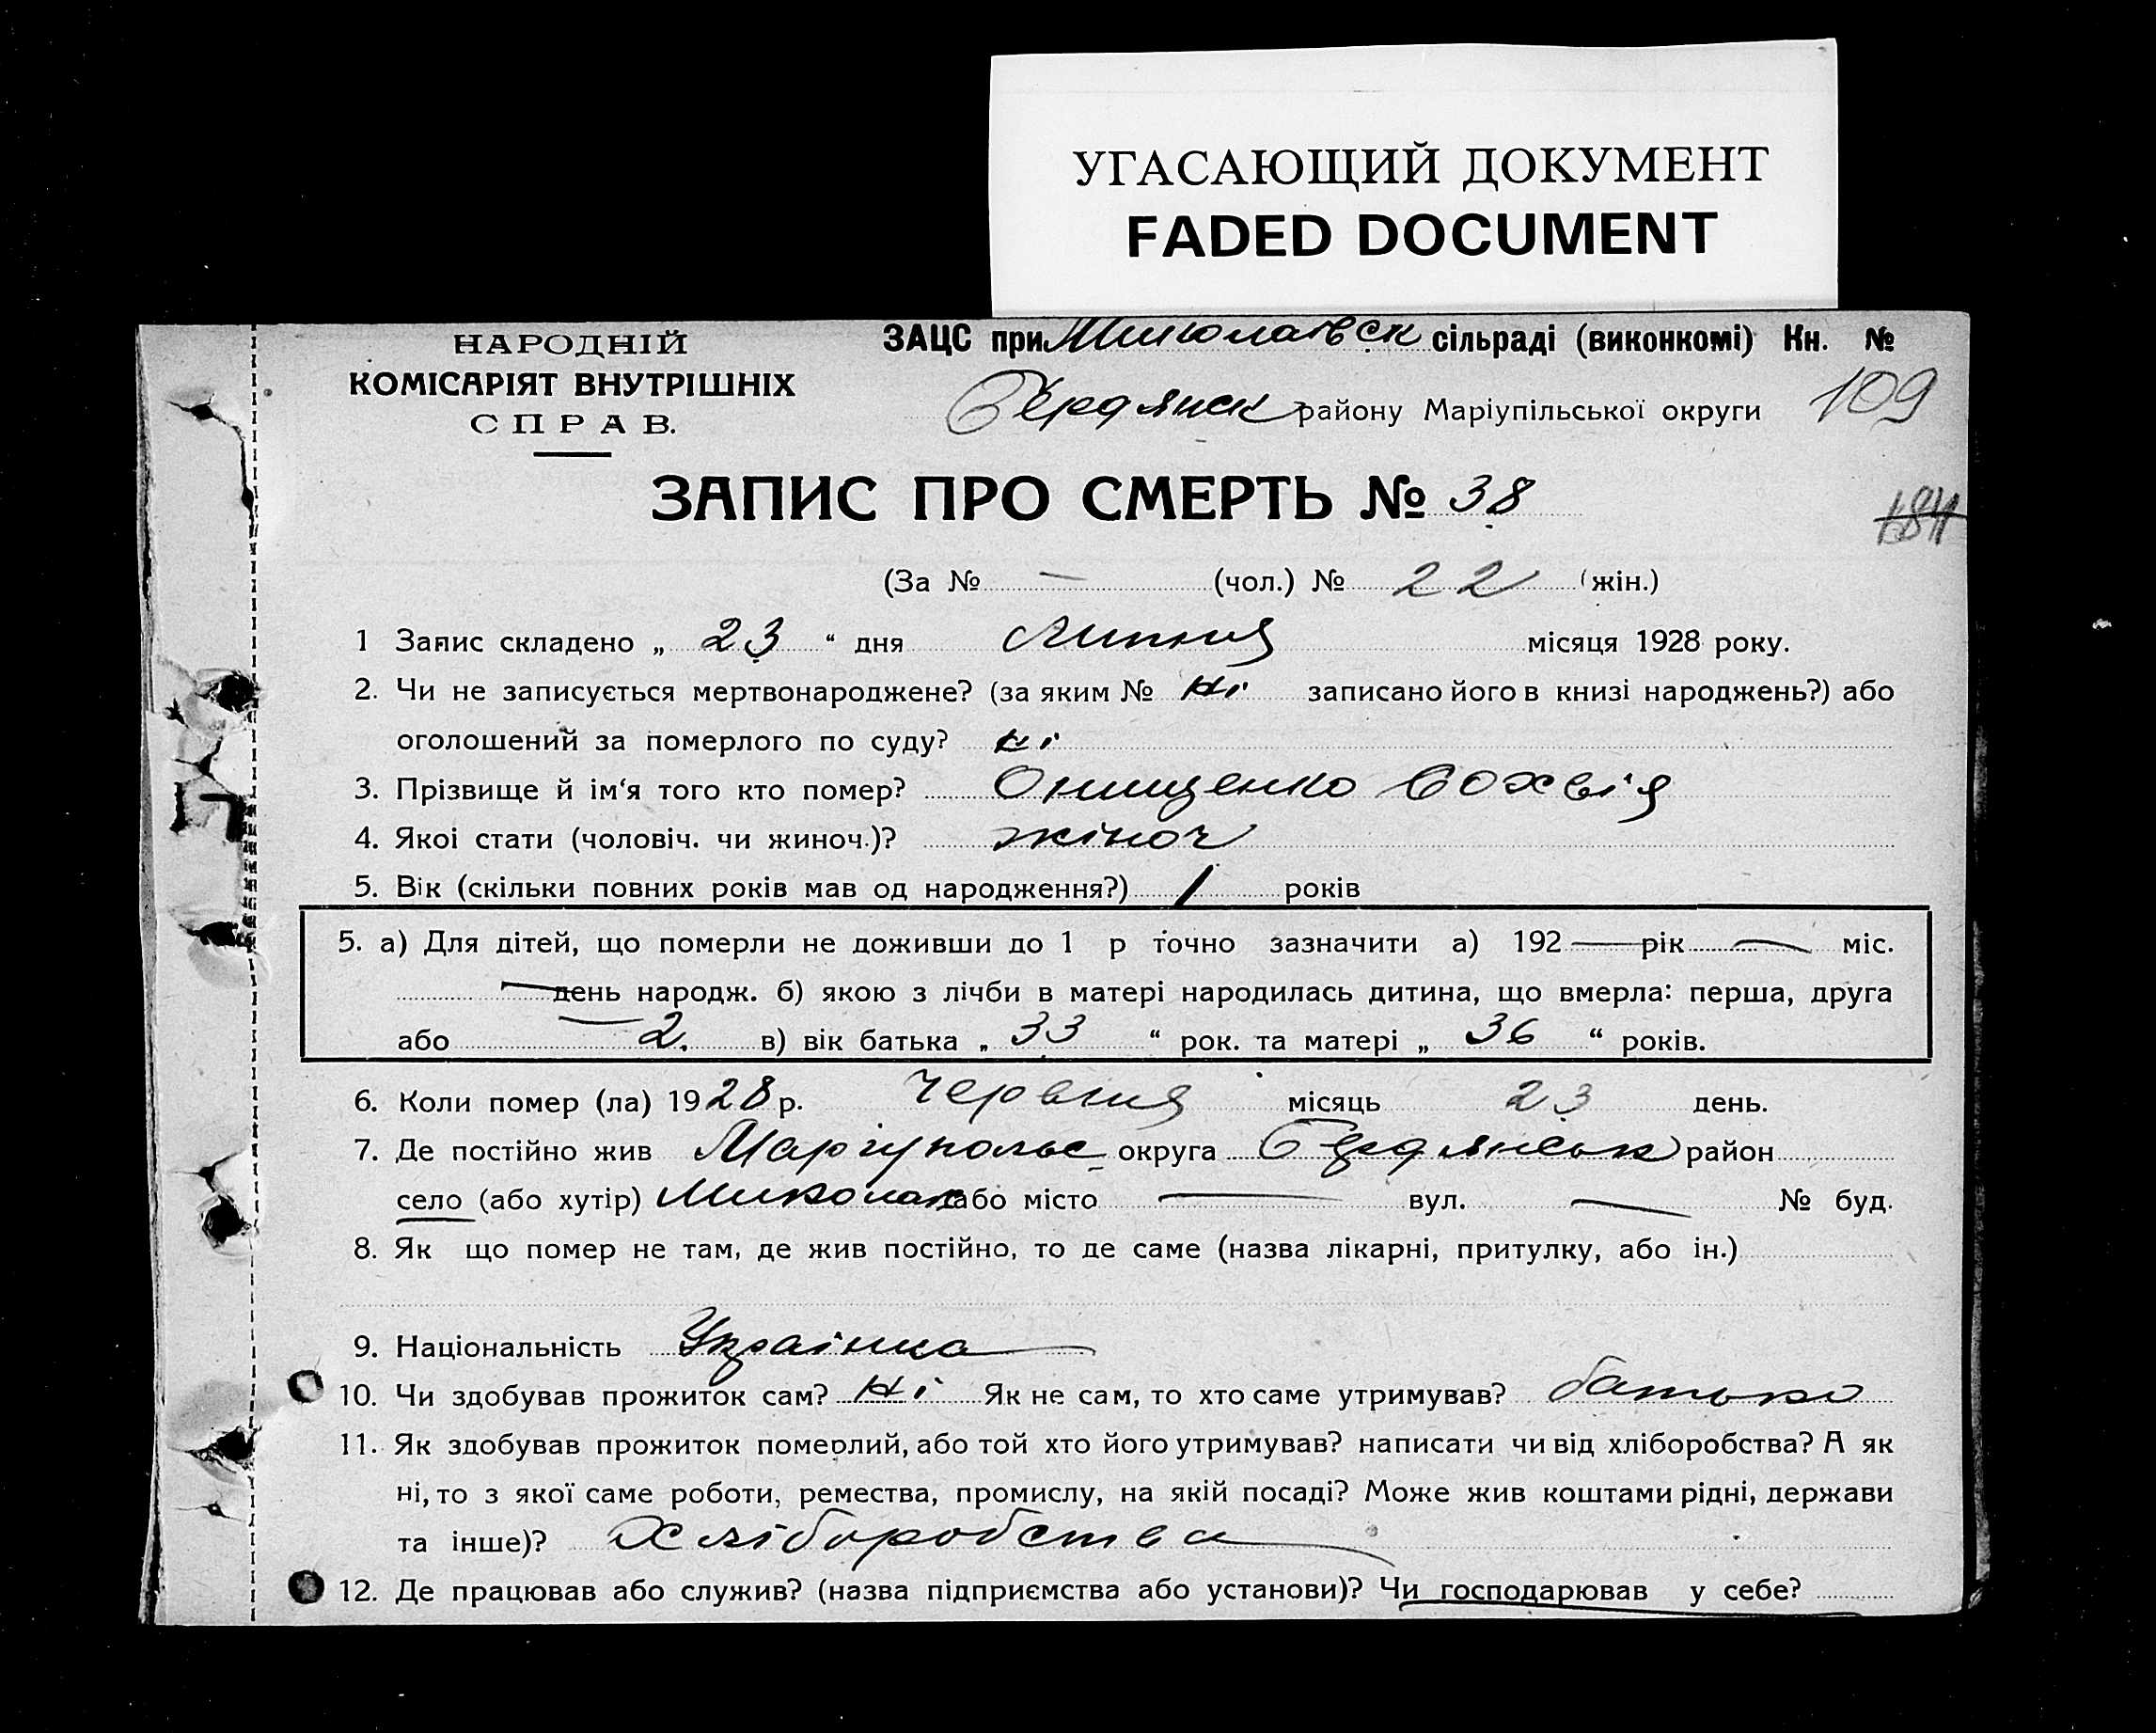 УГАСАЮЩИЙ ДОКУМЕНТ
FADED DOCUMENT
НАРОДНІЙ
КОМІСАРІЯТ ВНУТРІШНІХ
СПРАВ.
ЗАЦС при Миколаївск сільраді (виконкомі) Кн. №
Бердянск району Маріупільської округи 109
ЗАПИС ПРО СМЕРТЬ № 38
184
(За № — (чол.) № 22 (жін.)
1 Запис складено „ 23 “ дня Липня місяця 1928 року.
2. Чи не записується мертвонароджене? (за яким № Ні записано його в книзі народжень?) або
оголошений за померлого по суду? ні
3. Прізвище й ім‘я того кто помер? Онищенко Сохвія
4. Якоі стати (чоловіч. чи жиноч.)? жіноч
5. Вік (скільки повних років мав од народження?) 1 років
5. а) Для дітей, що померли не доживши до 1 р точно зазначити а) 192 — рік — міс.
— день народж. б) якою з лічби в матері народилась дитина, що вмерла: перша, друга
або 2. в) вік батька „ 33 “ рок. та матері „ 36 “ років.
6. Коли помер (ла) 1928 р. Червня місяць 23 день.
7. Де постійно жив Маріупольс округа Бердянськ район
село (або хутір) Миколаїв або місто — вул. — № буд.
8. Як що помер не там, де жив постійно, то де саме (назва лікарні, притулку, або ін.)
9. Національність Українка
10. Чи здобував прожиток сам? Ні Як не сам, то хто саме утримував? батько
11. Як здобував прожиток померлий, або той хто його утримував? написати чи від хліборобства? А як
ні, то з якої саме роботи, ремества, промислу, на якій посаді? Може жив коштами рідні, держави
та інше)? Хліборобства
12. Де працював або служив? (назва підприємства або установи)? Чи господарював у себе?